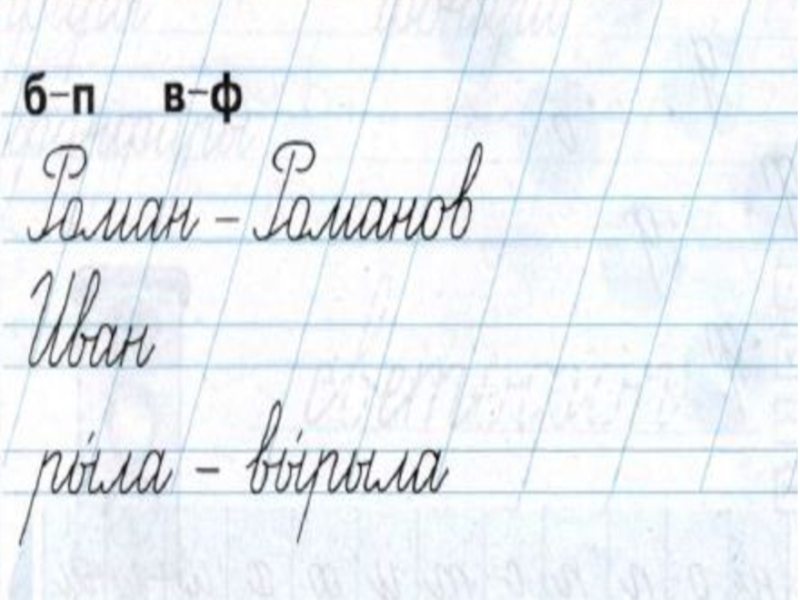 б–п в–ф
Роман – Романов
Иван
ры́ла – вы́рыла